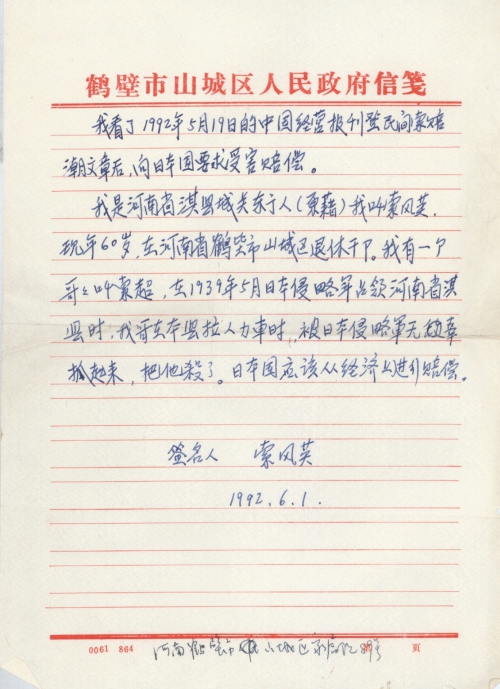 鹤壁市山城区人民政府信笺
我看了1992年5月19日的中国经营报刊登民间索赔
潮文章后，向日本国要求受害赔偿。
我是河南省淇县城关东于人(原藉)我叫索凤英，
现年60岁，在河南省鹤壁市山城区退休干卩。我有一个
哥〻叫索超，在1939年5月日本侵略军占领河南省淇
县时，我哥在本县拉人力車时，被日本侵略軍无故
抓起来，把他殺了。日本国应该从经济上进行赔偿。
签名人 索凤英
1992.6.1.
0061 864 河南鹤壁市 山城区 号 页